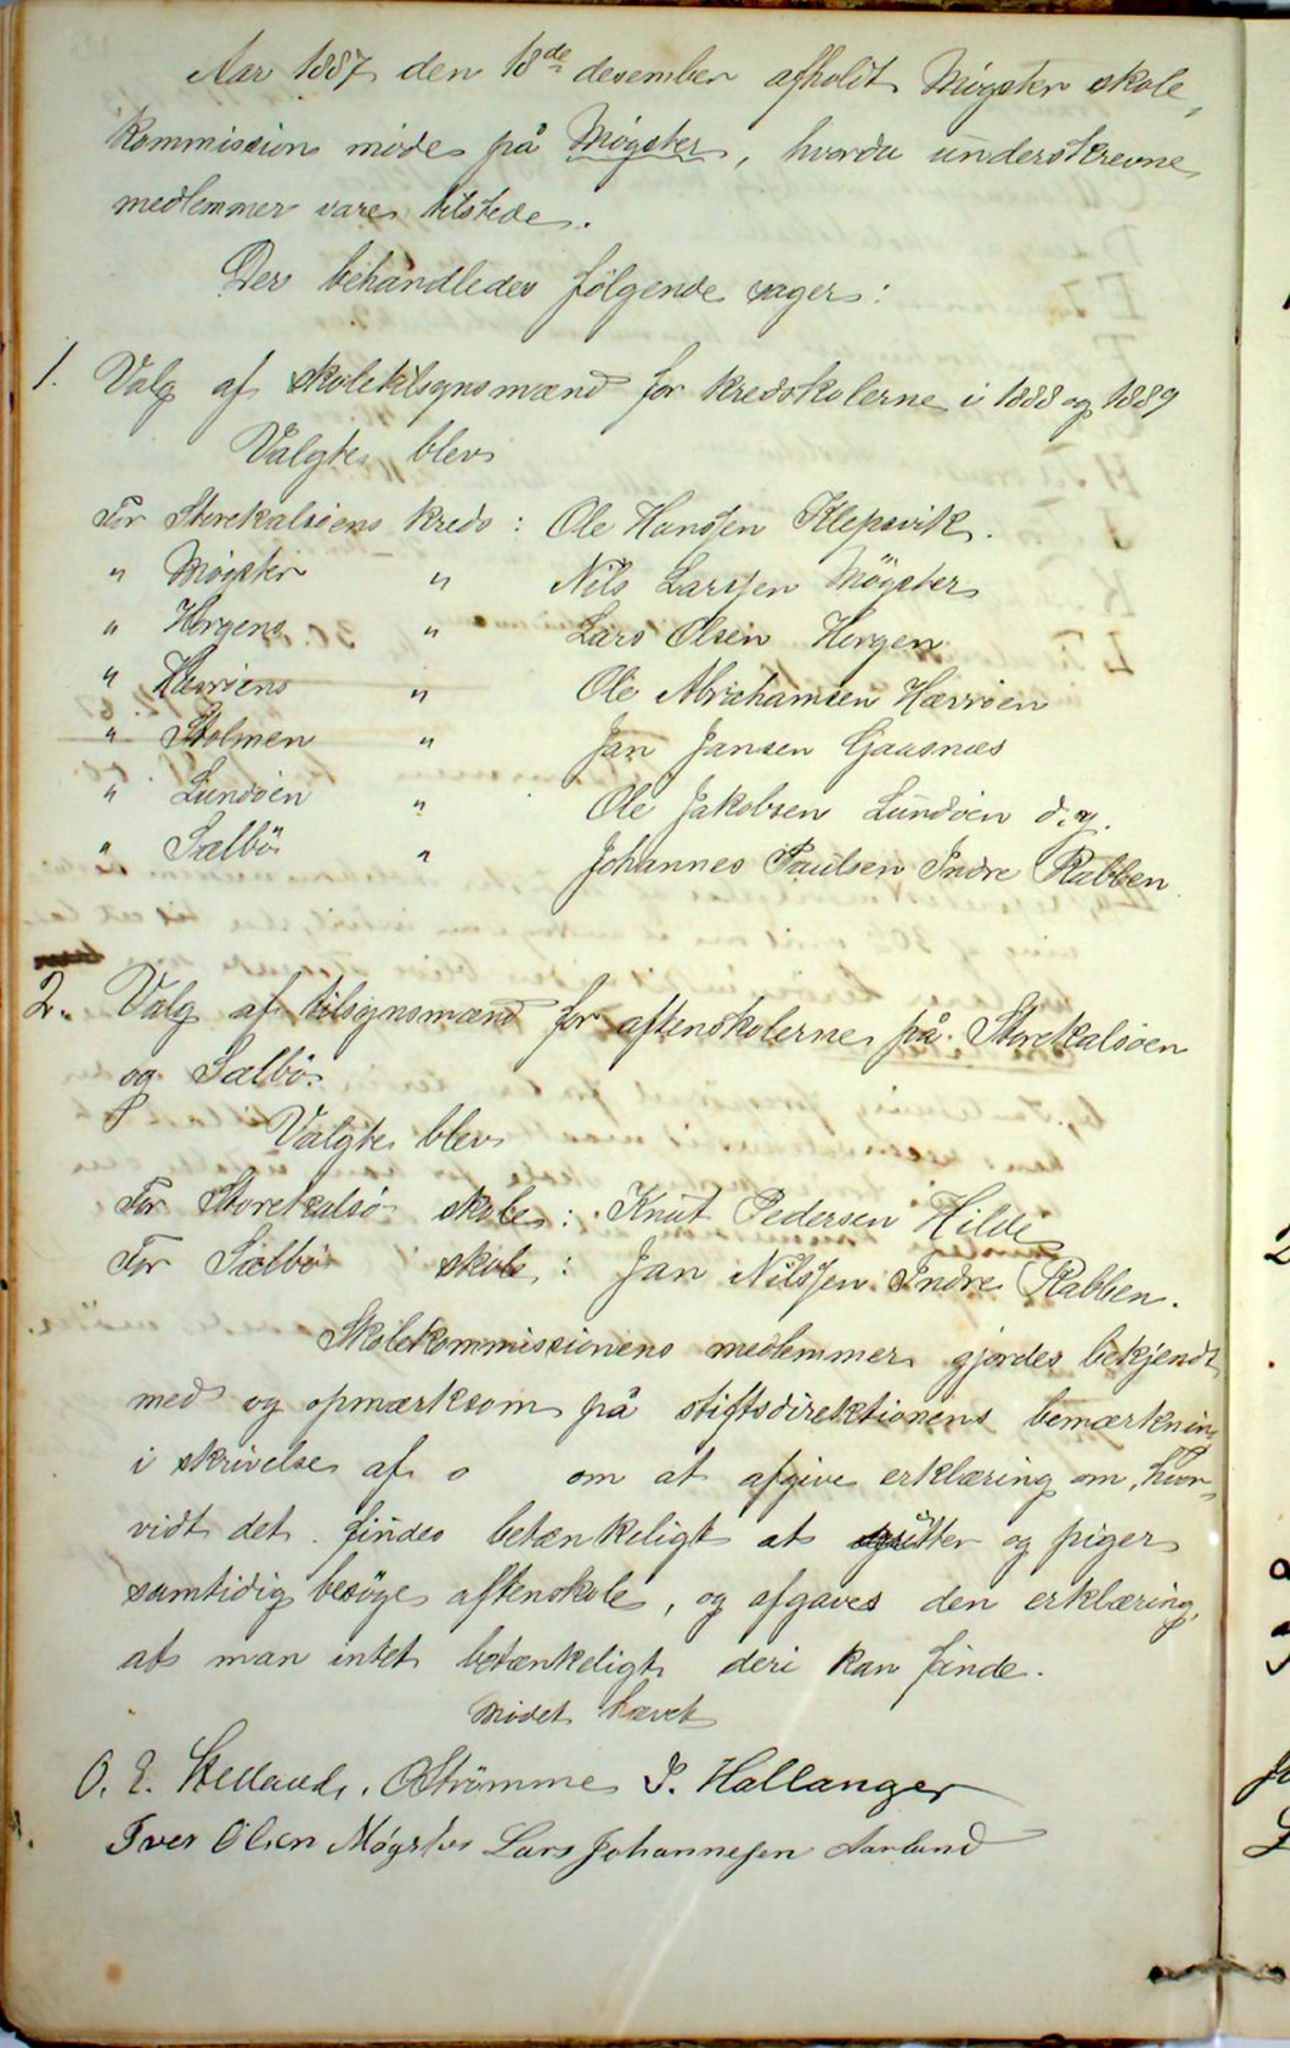 Aar 1887 den 18de desember afholdt Møgster skole,
kommission møde på Møgster, hvorda underskrevne
medlemmer vare tilstede.
Der behandledes følgende sager:
1. Valg af skoletilsynsmænd for kredskolerne i 1888 og 1889
Valgte blev
For Storekalsøens kreds: Ole Hanssen Klepsvik.
" Møgster " Nils Larssen Møgster
" Horgens " Lars Olsen Horgen
" Hævrøens " Ole Abrahamsen Hævrøen
" Stolmen " Jan Jansen Gaasnæs
" Lundøen " Ole Jakobsen Lundøen d.y.
" Sælbö " Johannes Paulsen Indre Rabben
2. Valg af tilsynsmænd for aftenskolerne på Storekalsøen
og Sælbö.
Valgte blev
For Storekalsø skole: Knut Pedersen Hilde
For Sælbø skole: Jan Nilssen Indre Rabben.
Skolekommissionens medlemmer gjordes bekjendt
med og opmærksom på stiftsdirektionens bemærkning
i skrivelse af o om at afgive erklæring om, hvor,
vidt det findes betænkeligt at gutter og piger
samtidig besøge aftenskole, og afgaves den erklæring,
at man intet betænkeligt deri kan finde.
Mødet hævet
O. E. OStrömme S. Hallanger
Iver Olsen Møgster Lars Johannesen Aarland